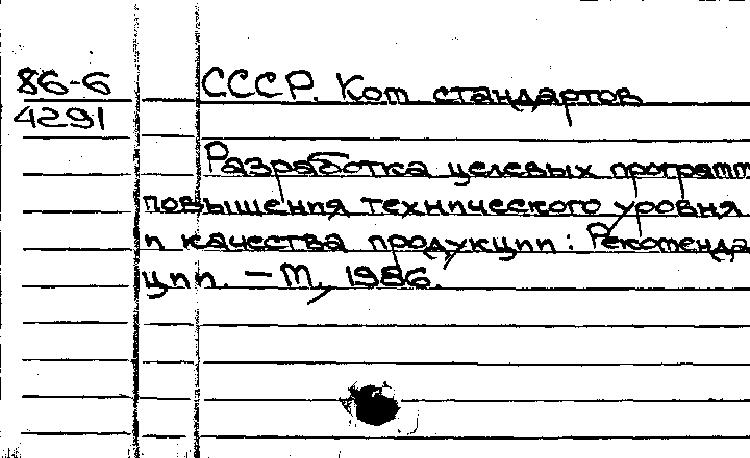 86-6
СССР. Ком стандартов
4291
Разработка целевых программ
повышения технического уровня
и качества продукции: Рекоменда
ции. – М., 1986.